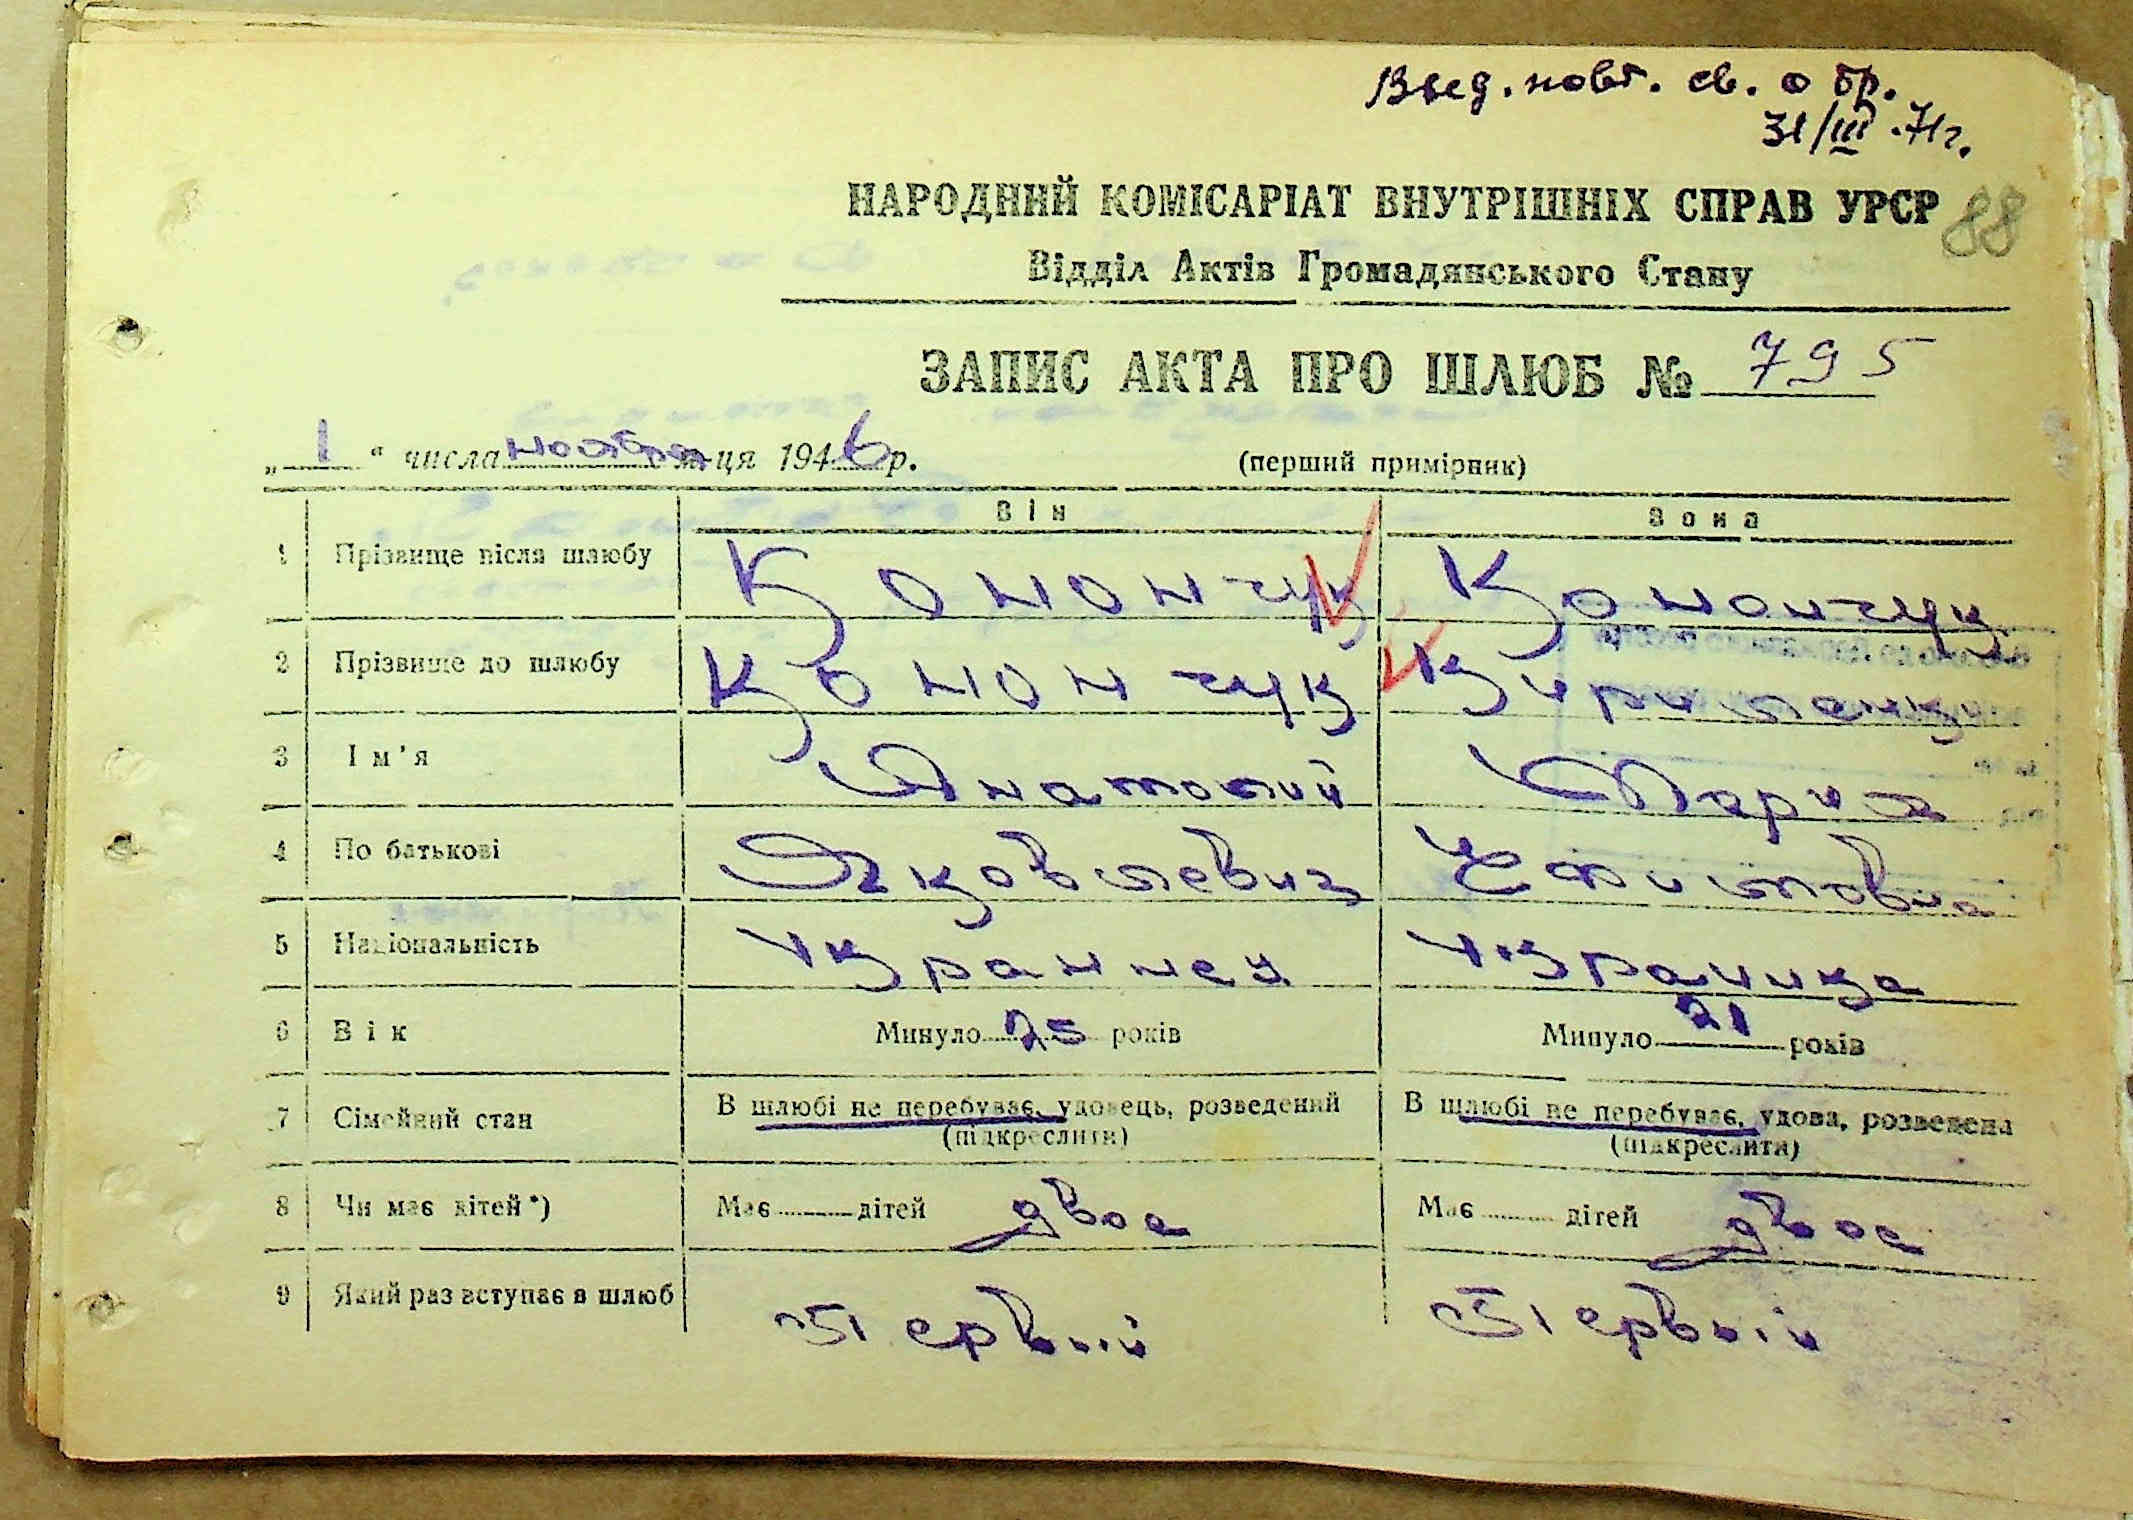 Выд. повт. св. о бр.
31/III.71г.
НАРОДНИЙ КОМІСАРІАТ ВНУТРІШНІХ СПРАВ УРСР 88
Відділ Актів Громадянського Стану
ЗАПИС АКТА ПРО ШЛЮБ № 795
„ 1 “ числа ноября м-ця 1946 р. (перший примірник)
Він Вона
1 Прізвище після шлюбу Конончук Конончук
2 Прізвище до шлюбу Конончук
3 Ім'я Анатолий Мария
4 По батькові Яковлевич
5 Національність Украинец Украинка
6 Вік Минуло 25 років Минуло 21 років
7 Сімейний стан В шлюбі не перебуває, удовець, розведений В шлюбі не перебуває, удова, розведена
(підкреслити) (підкреслити)
8 Чи має дітей*) Має дітей двое Має дітей двое
9 Який раз вступає в шлюб Первый Первый